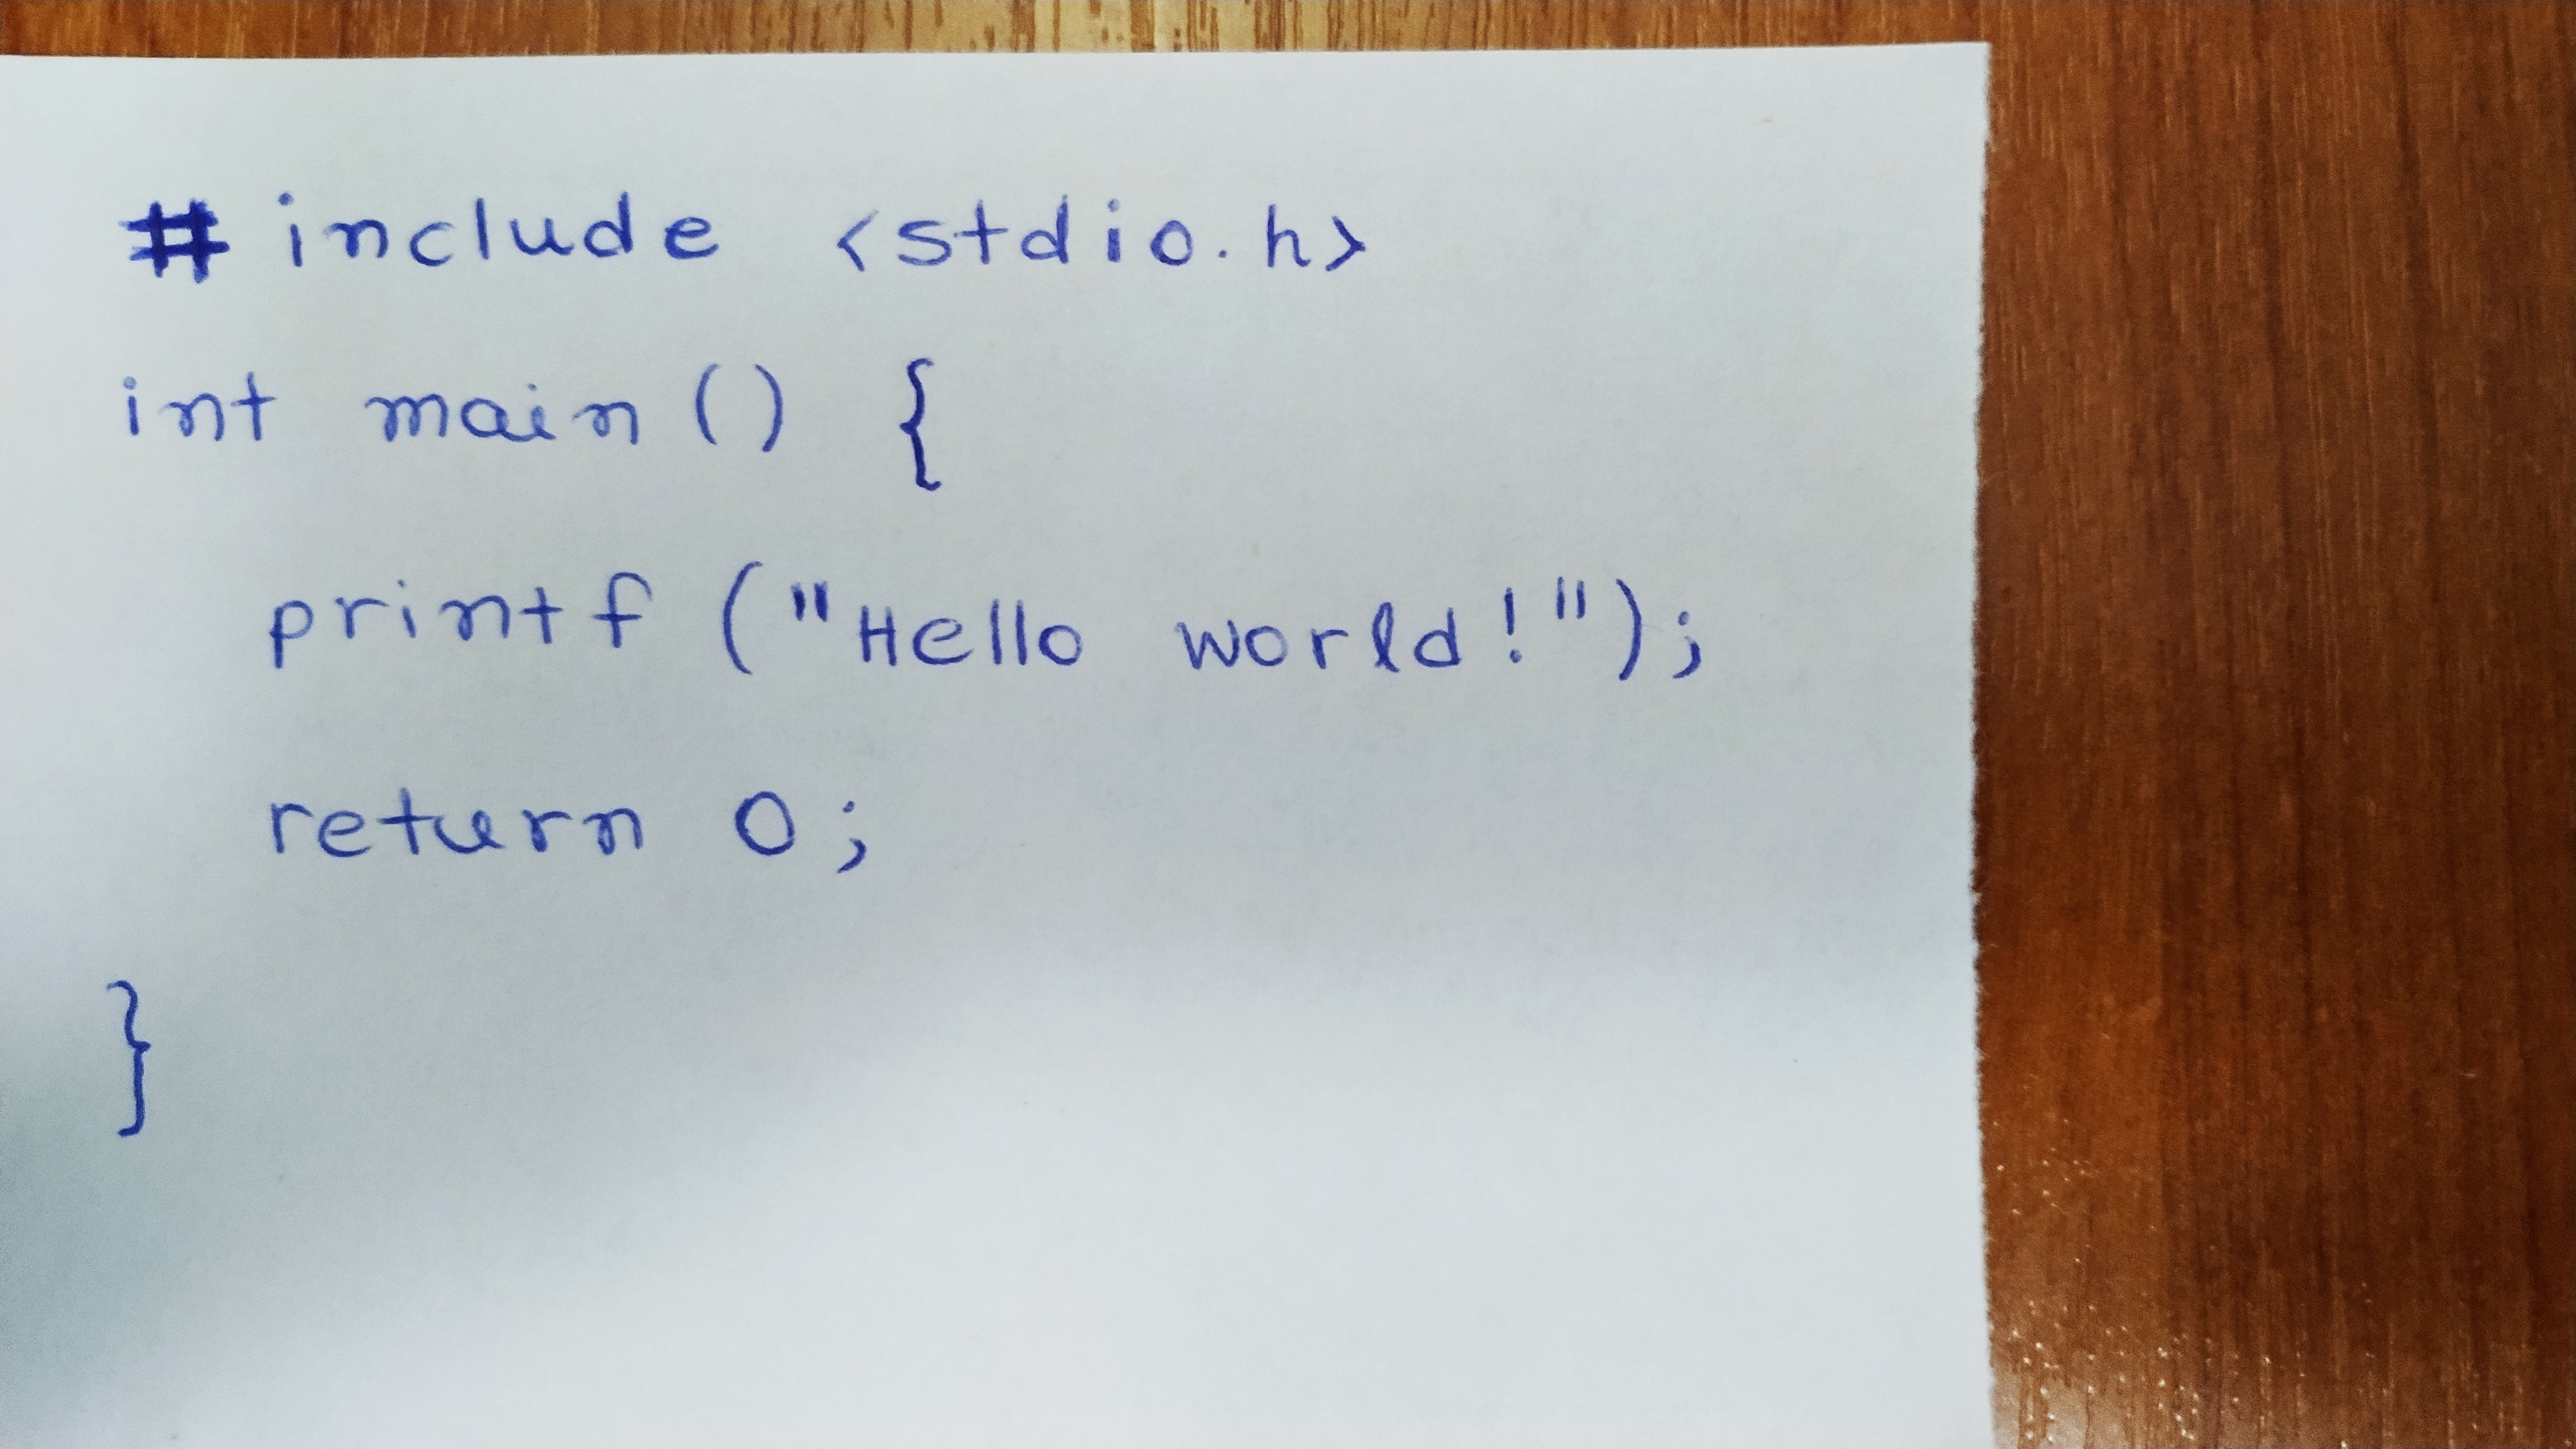 # include <stdio.h>
int main () {
printf ("Hello world!");
return 0;
}